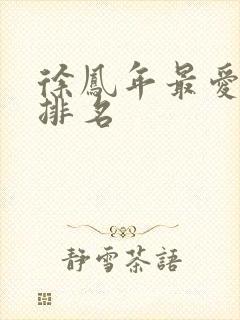 徐鳳年最愛
排名
靜雪茶語